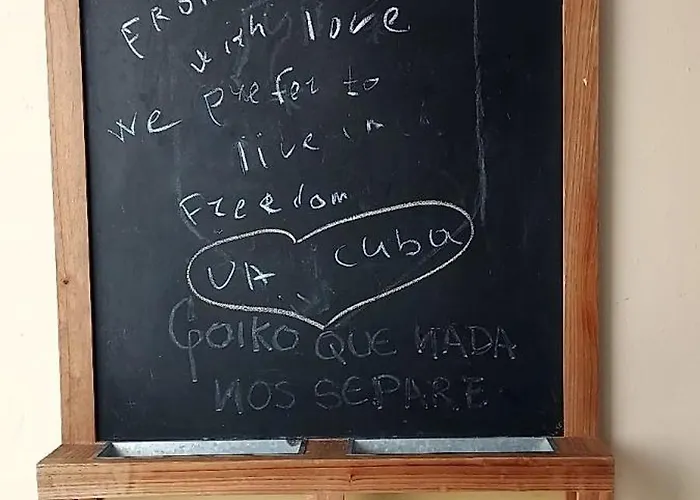 FROM
with love
we prefer to
live in
Freedom
UA cuba
Goiko QUE NADA
NOS SEPARE